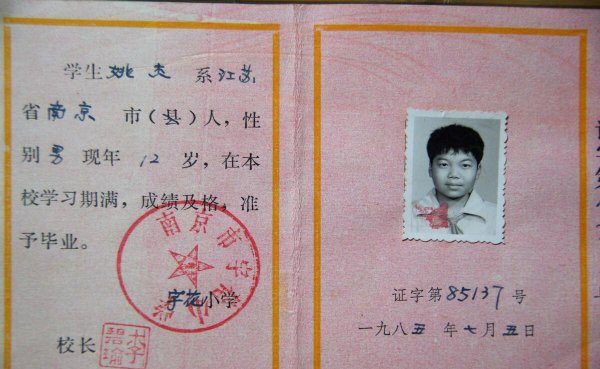 学生姚杰 系江苏
省南京 市(县)人，性
别男 现年 12 岁，在本
校学习期满，成绩及格，准
予毕业。
字花小学
校长
南京市字花小学
证字第85137号
一九八五 年七月五日